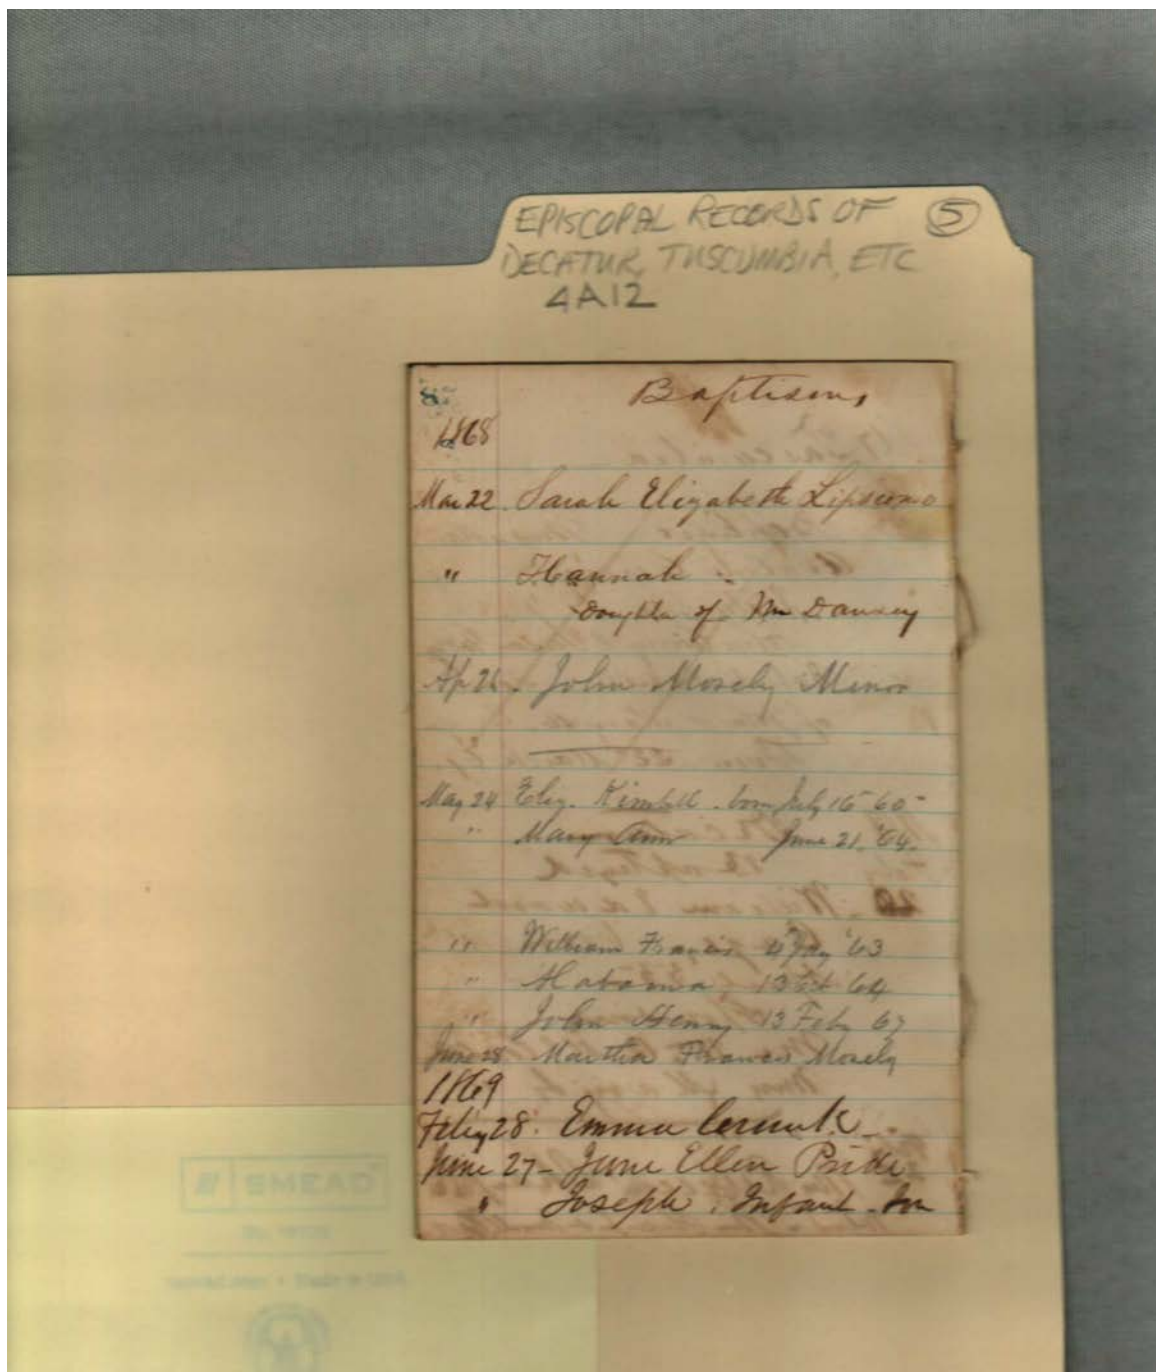 EPISCOPAL RECORDS OF ⑤
DECATUR, TUSCUMBIA, ETC
4A12
8
Baptisms
1868
Mar 22. Sarah Elizabeth Lipscomb
" Hannah
Daughter of Mr
Ap 26. John Mosely Minor
May 24 Eliz. Kimbell born July 16 60
" Mary Ann June 21, '64
" William Francis 4 '63
" Alabama, 13 64
" John Henry 13 Feby 67
June 28 Martha Frances Mosely
1869
Feby 28. Emma
June 27 - June Ellen Pride
" Joseph, Infant Son
SMEAD